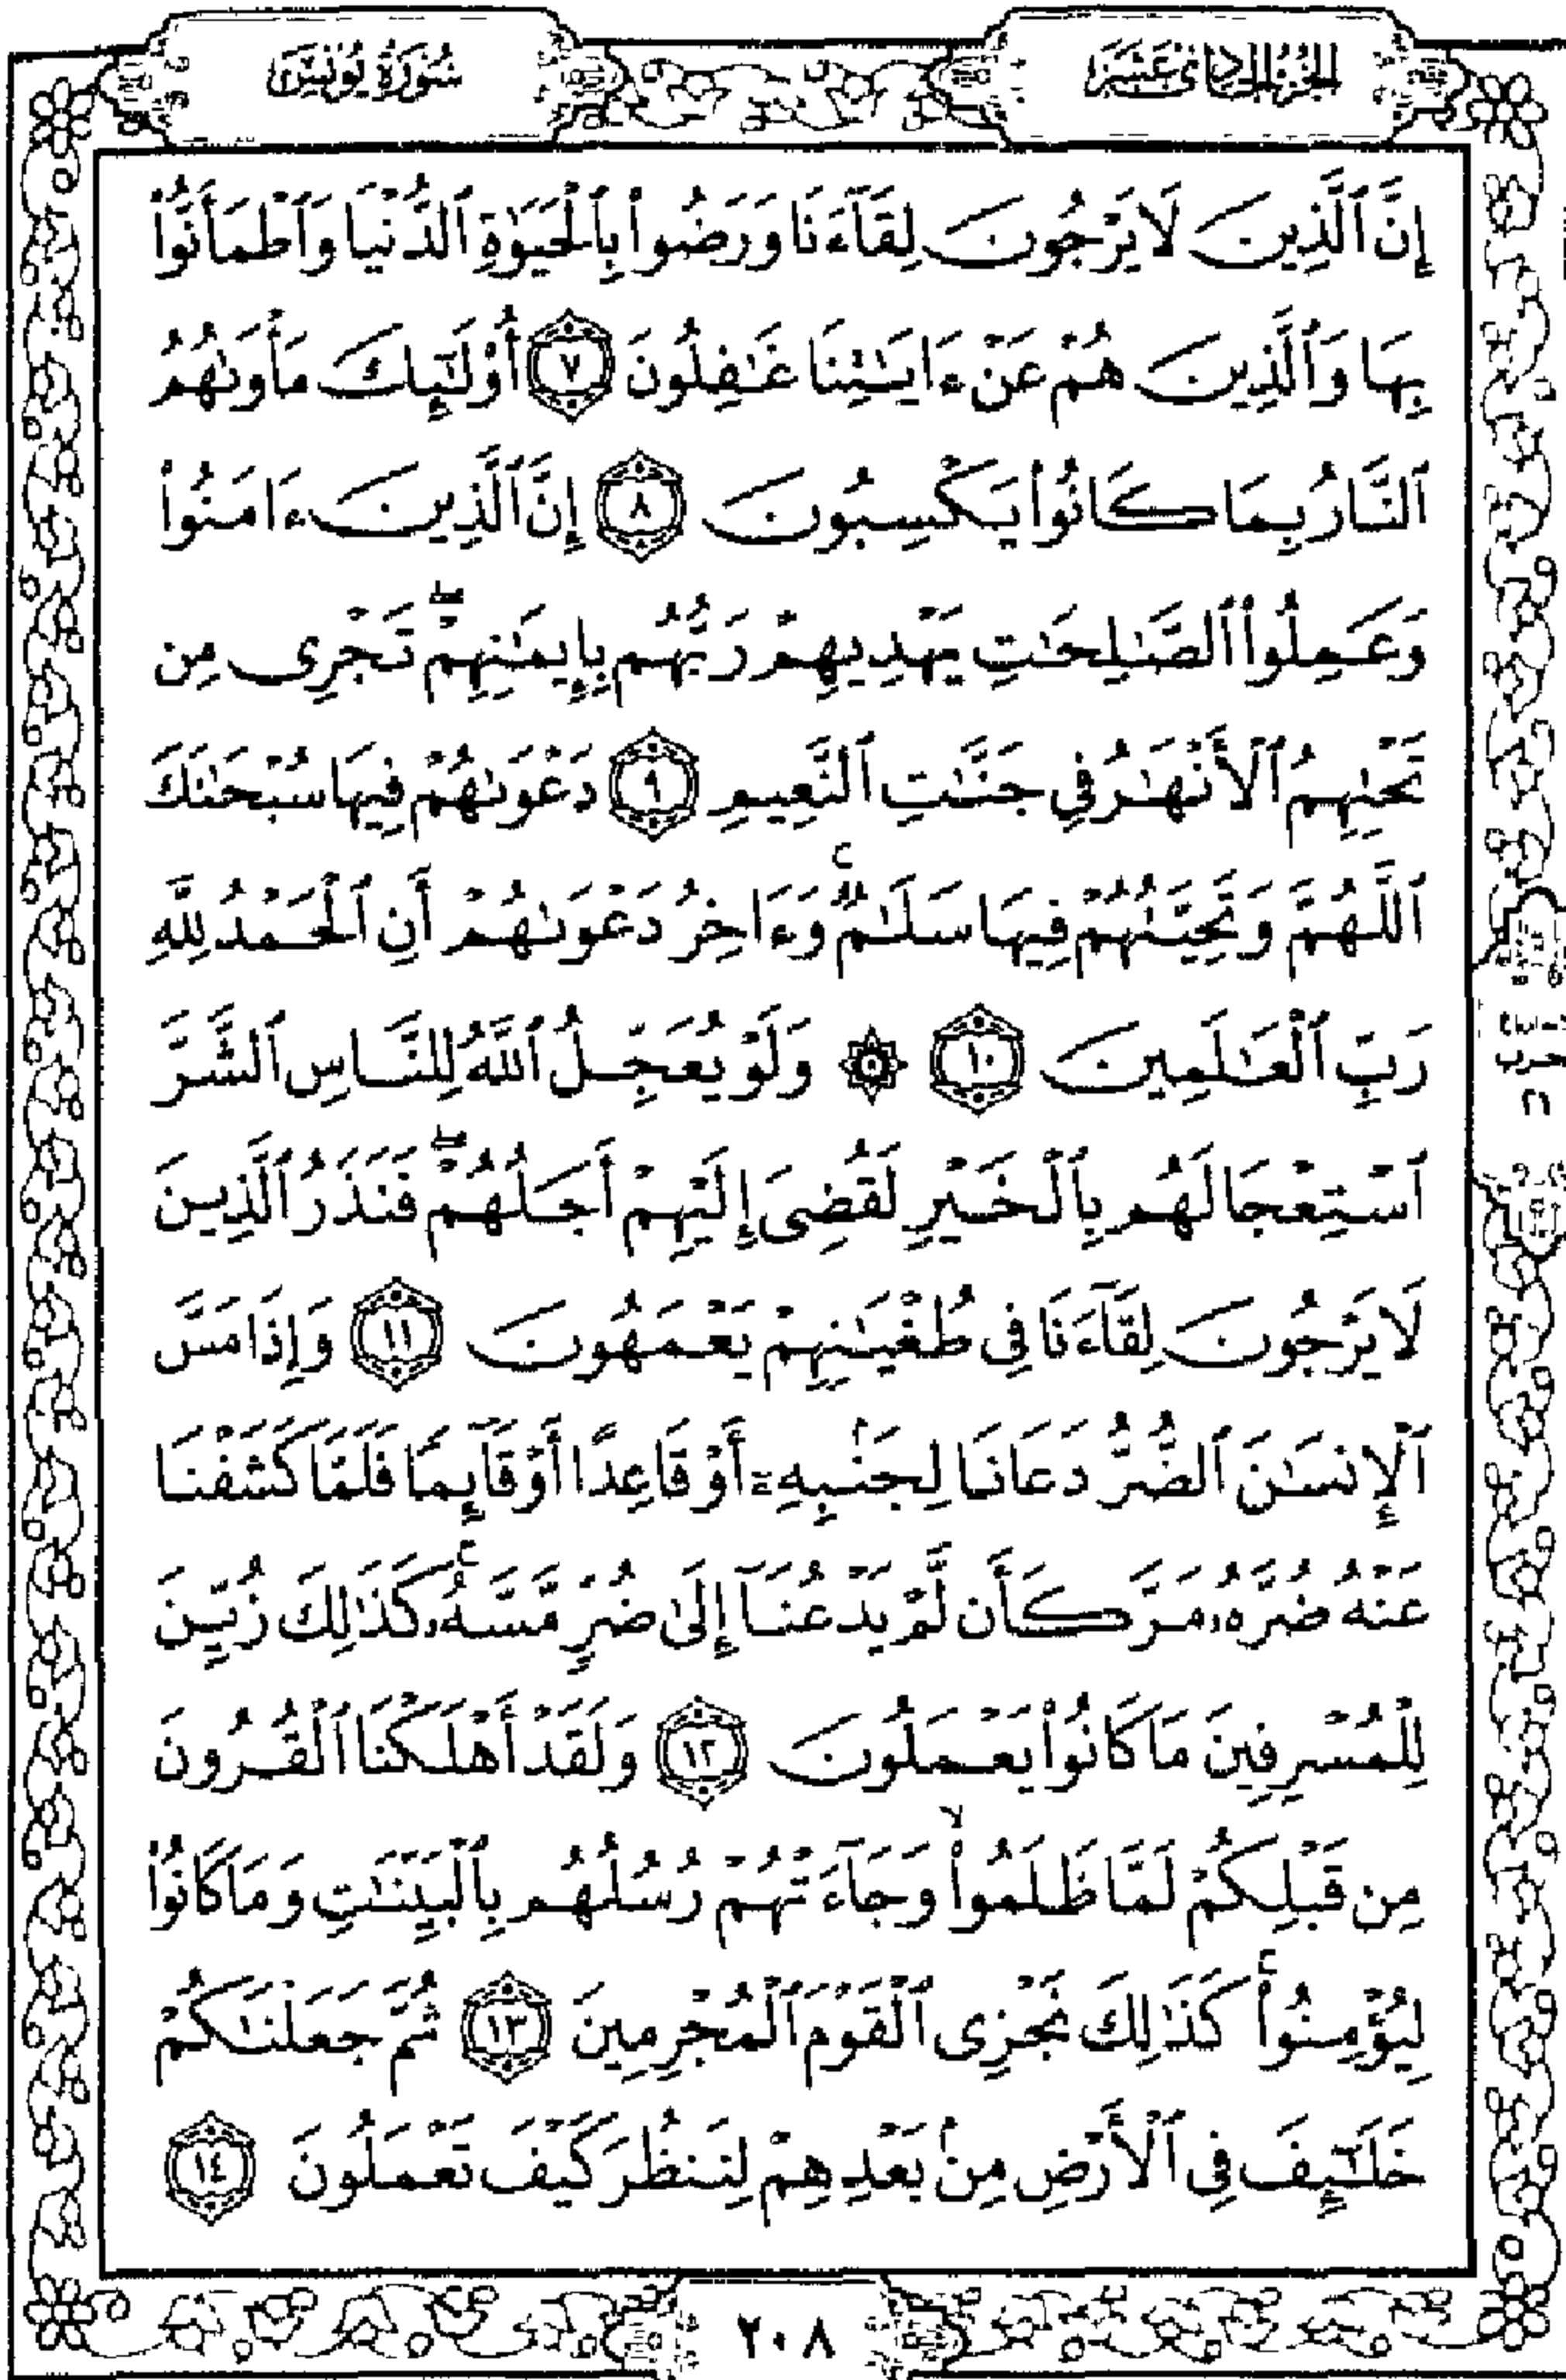 الجزء الحادي عشر
سورة يونس
إِنَّ ٱلَّذِينَ لَا يَرْجُونَ لِقَآءَنَا وَرَضُوا۟ بِٱلْحَيَوٰةِ ٱلدُّنْيَا وَٱطْمَأَنُّوا۟
بِهَا وَٱلَّذِينَ هُمْ عَنْ ءَايَٰتِنَا غَٰفِلُونَ ٧ أُو۟لَٰٓئِكَ مَأْوَىٰهُمُ
ٱلنَّارُ بِمَا كَانُوا۟ يَكْسِبُونَ ٨ إِنَّ ٱلَّذِينَ ءَامَنُوا۟
وَعَمِلُوا۟ ٱلصَّٰلِحَٰتِ يَهْدِيهِمْ رَبُّهُم بِإِيمَٰنِهِمْۖ تَجْرِى مِن
تَحْتِهِمُ ٱلْأَنْهَٰرُ فِى جَنَّٰتِ ٱلنَّعِيمِ ٩ دَعْوَىٰهُمْ فِيهَا سُبْحَٰنَكَ
ٱللَّهُمَّ وَتَحِيَّتُهُمْ فِيهَا سَلَٰمٌۚ وَءَاخِرُ دَعْوَىٰهُمْ أَنِ ٱلْحَمْدُ لِلَّهِ
رَبِّ ٱلْعَٰلَمِينَ ١٠ ۞ وَلَوْ يُعَجِّلُ ٱللَّهُ لِلنَّاسِ ٱلشَّرَّ
ٱسْتِعْجَالَهُم بِٱلْخَيْرِ لَقُضِىَ إِلَيْهِمْ أَجَلُهُمْۖ فَنَذَرُ ٱلَّذِينَ
لَا يَرْجُونَ لِقَآءَنَا فِى طُغْيَٰنِهِمْ يَعْمَهُونَ ١١ وَإِذَا مَسَّ
ٱلْإِنسَٰنَ ٱلضُّرُّ دَعَانَا لِجَنۢبِهِۦٓ أَوْ قَاعِدًا أَوْ قَآئِمًا فَلَمَّا كَشَفْنَا
عَنْهُ ضُرَّهُۥ مَرَّ كَأَن لَّمْ يَدْعُنَآ إِلَىٰ ضُرٍّ مَّسَّهُۥۚ كَذَٰلِكَ زُيِّنَ
لِلْمُسْرِفِينَ مَا كَانُوا۟ يَعْمَلُونَ ١٢ وَلَقَدْ أَهْلَكْنَا ٱلْقُرُونَ
مِن قَبْلِكُمْ لَمَّا ظَلَمُوا۟ۙ وَجَآءَتْهُمْ رُسُلُهُم بِٱلْبَيِّنَٰتِ وَمَا كَانُوا۟
لِيُؤْمِنُوا۟ۚ كَذَٰلِكَ نَجْزِى ٱلْقَوْمَ ٱلْمُجْرِمِينَ ١٣ ثُمَّ جَعَلْنَٰكُمْ
خَلَٰٓئِفَ فِى ٱلْأَرْضِ مِنۢ بَعْدِهِمْ لِنَنظُرَ كَيْفَ تَعْمَلُونَ ١٤
٢٠٨